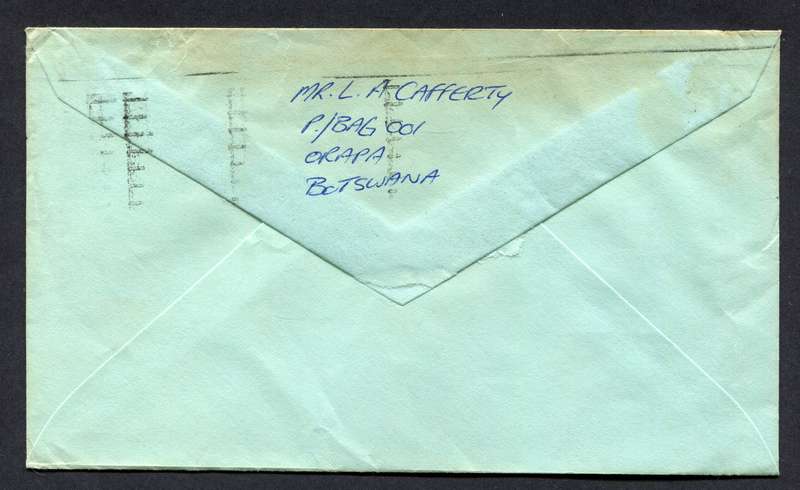 MR. L. A CAFFERTY
P./BAG 001
ORAPA
BOTSWANA